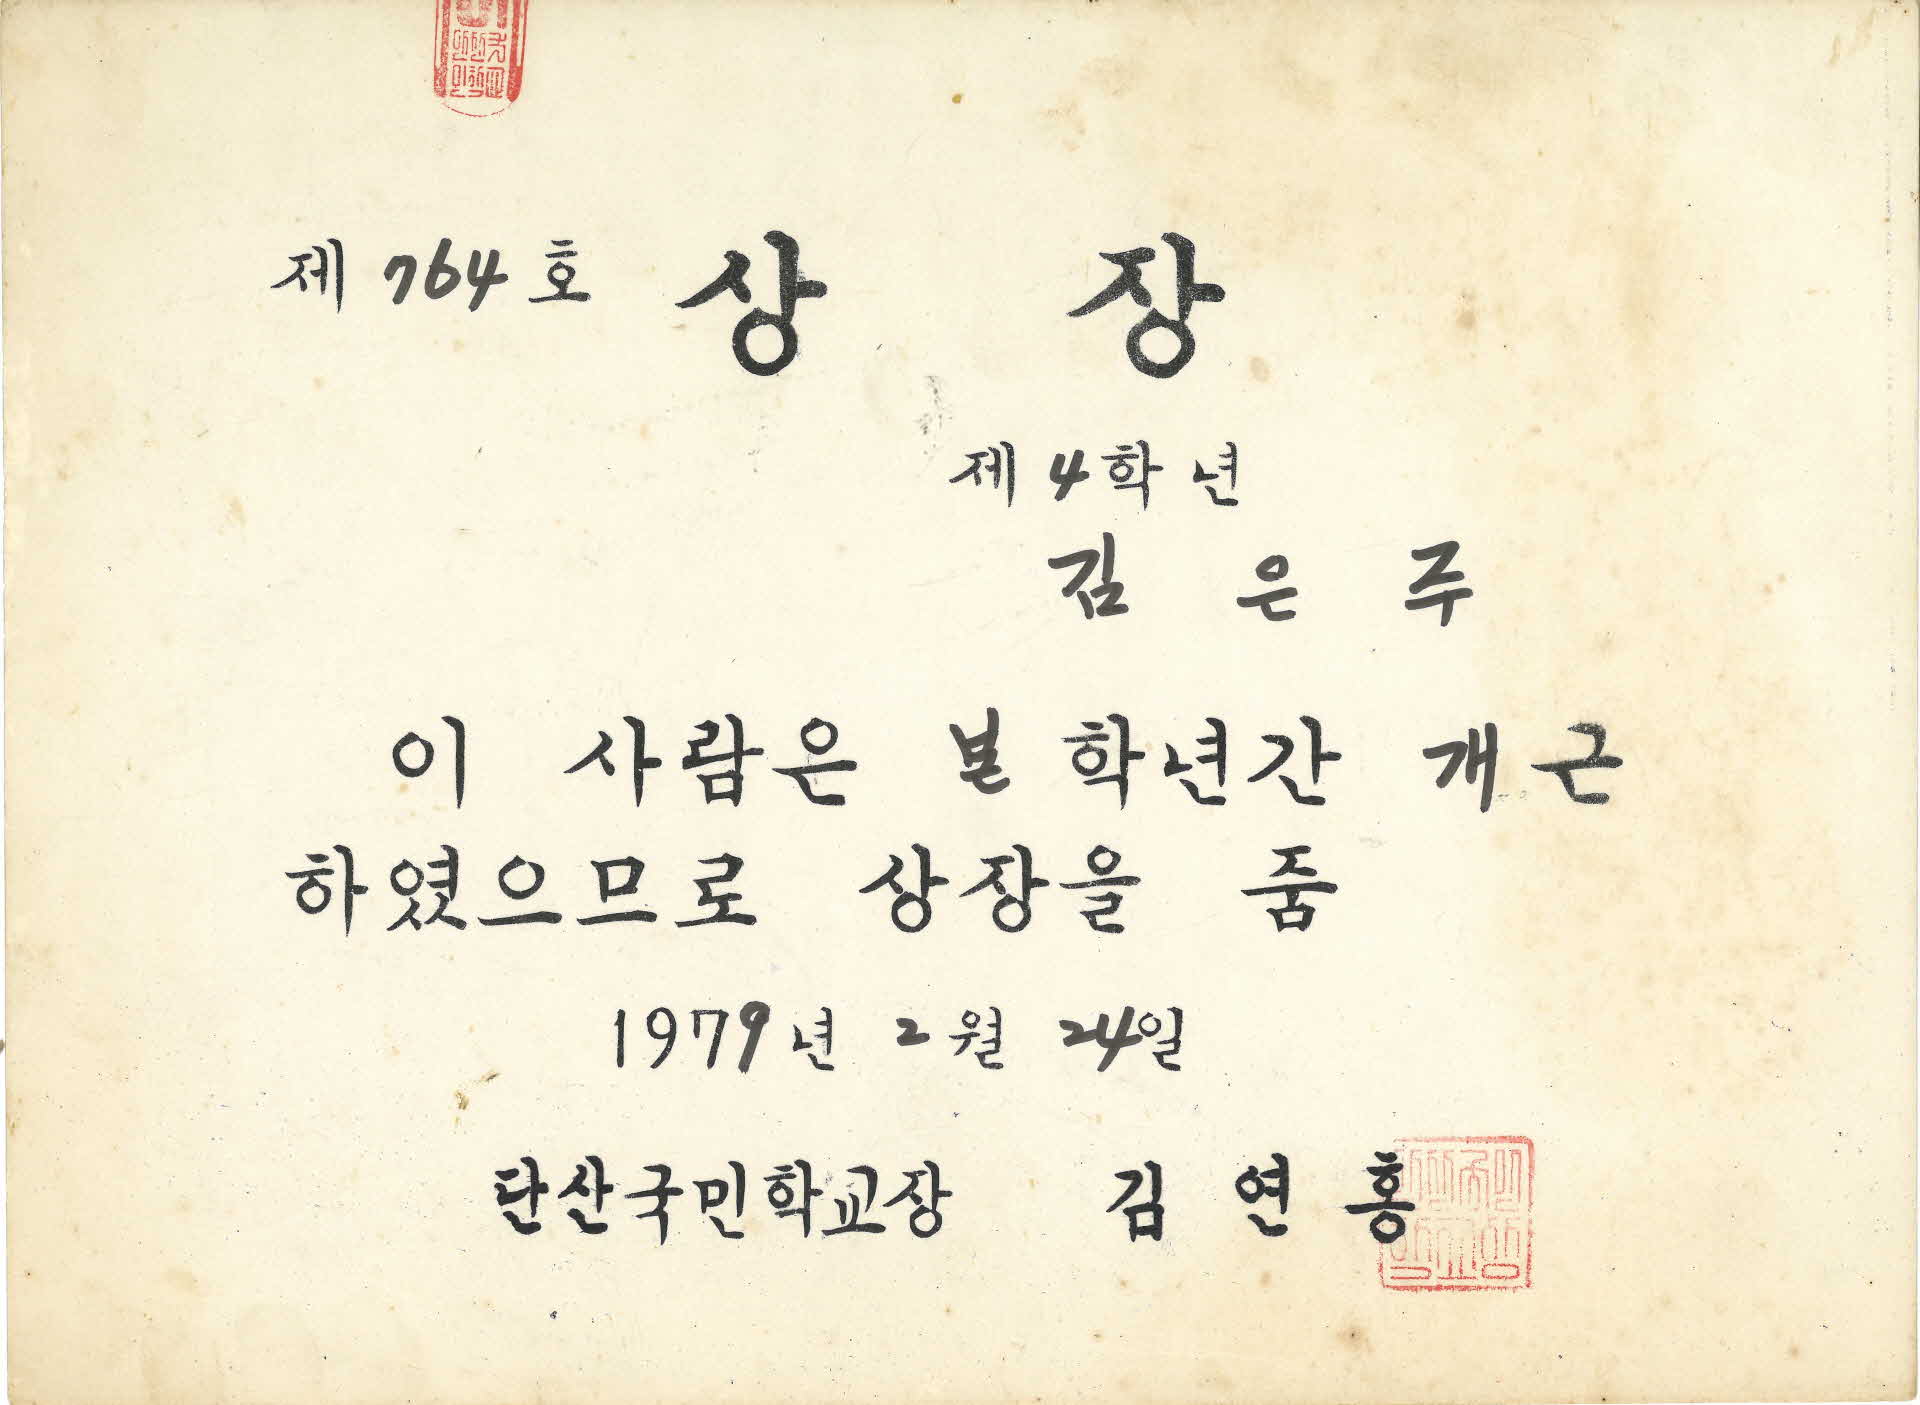 제 764 호 상 장
제 4 학 년
김 은 주
이 사람은 본 학년간 개근
하였으므로 상장을 줌
1979년 2월 24일
단산국민학교장 김 연 홍